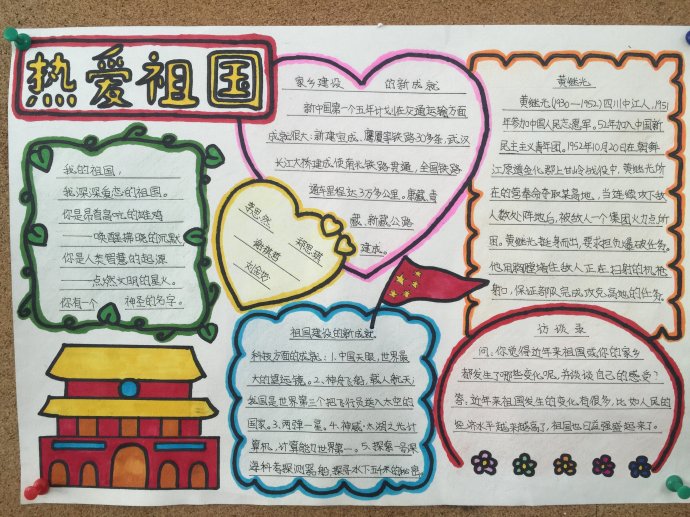 热爱祖国
我的祖国，
我深深爱恋的祖国。
你是昂首高吭的雄鸡
唤醒拂晓的沉默
你是人类智慧的起源
点燃文明的星火。
你有一个 神圣的名字。
家乡建设 的新成就
新中国第一个五年计划在交通运输方面
成就很大：新建宝成、鹰厦等铁路30多条，武汉
长江大桥建成，使南北铁路贯通，全国铁路
通车里程达3万多公里。康藏、青
藏、新藏公路
建成。
祖国建设的新成就。
科技方面的成就：1.中国天眼，世界最
大的望远镜。2.神舟飞船，载人航天；
我国是世界第三个把飞行员送入太空的
国家。3.两弹一星。4.神威·太湖之光计
算机，计算能力世界第一。5.探索一号深
海科考探测船，探寻水下五千米的秘密。
黄继光
黄继光(1930—1952)四川中江人，1951
年参加中国人民志愿军。52年加入中国新
民主主义青年团。1952年10月20日在朝鲜
江原道金化郡上甘岭战役中，黄继光所
在的营奉命夺取某高地。当连续攻下敌
人数处阵地后，被敌人一个集团火力点所
阻。黄继光挺身而出，要求担负爆破任务。
他用胸膛堵住敌人正在扫射的机枪
射口，保证部队完成攻克高地的任务。
访谈录
问：你觉得近年来祖国或你的家乡
都发生了哪些变化呢，并谈谈自己的感受？
答：近年来祖国发生的变化有很多，比如人民的
经济水平越来越高了，祖国也日益强盛起来了。